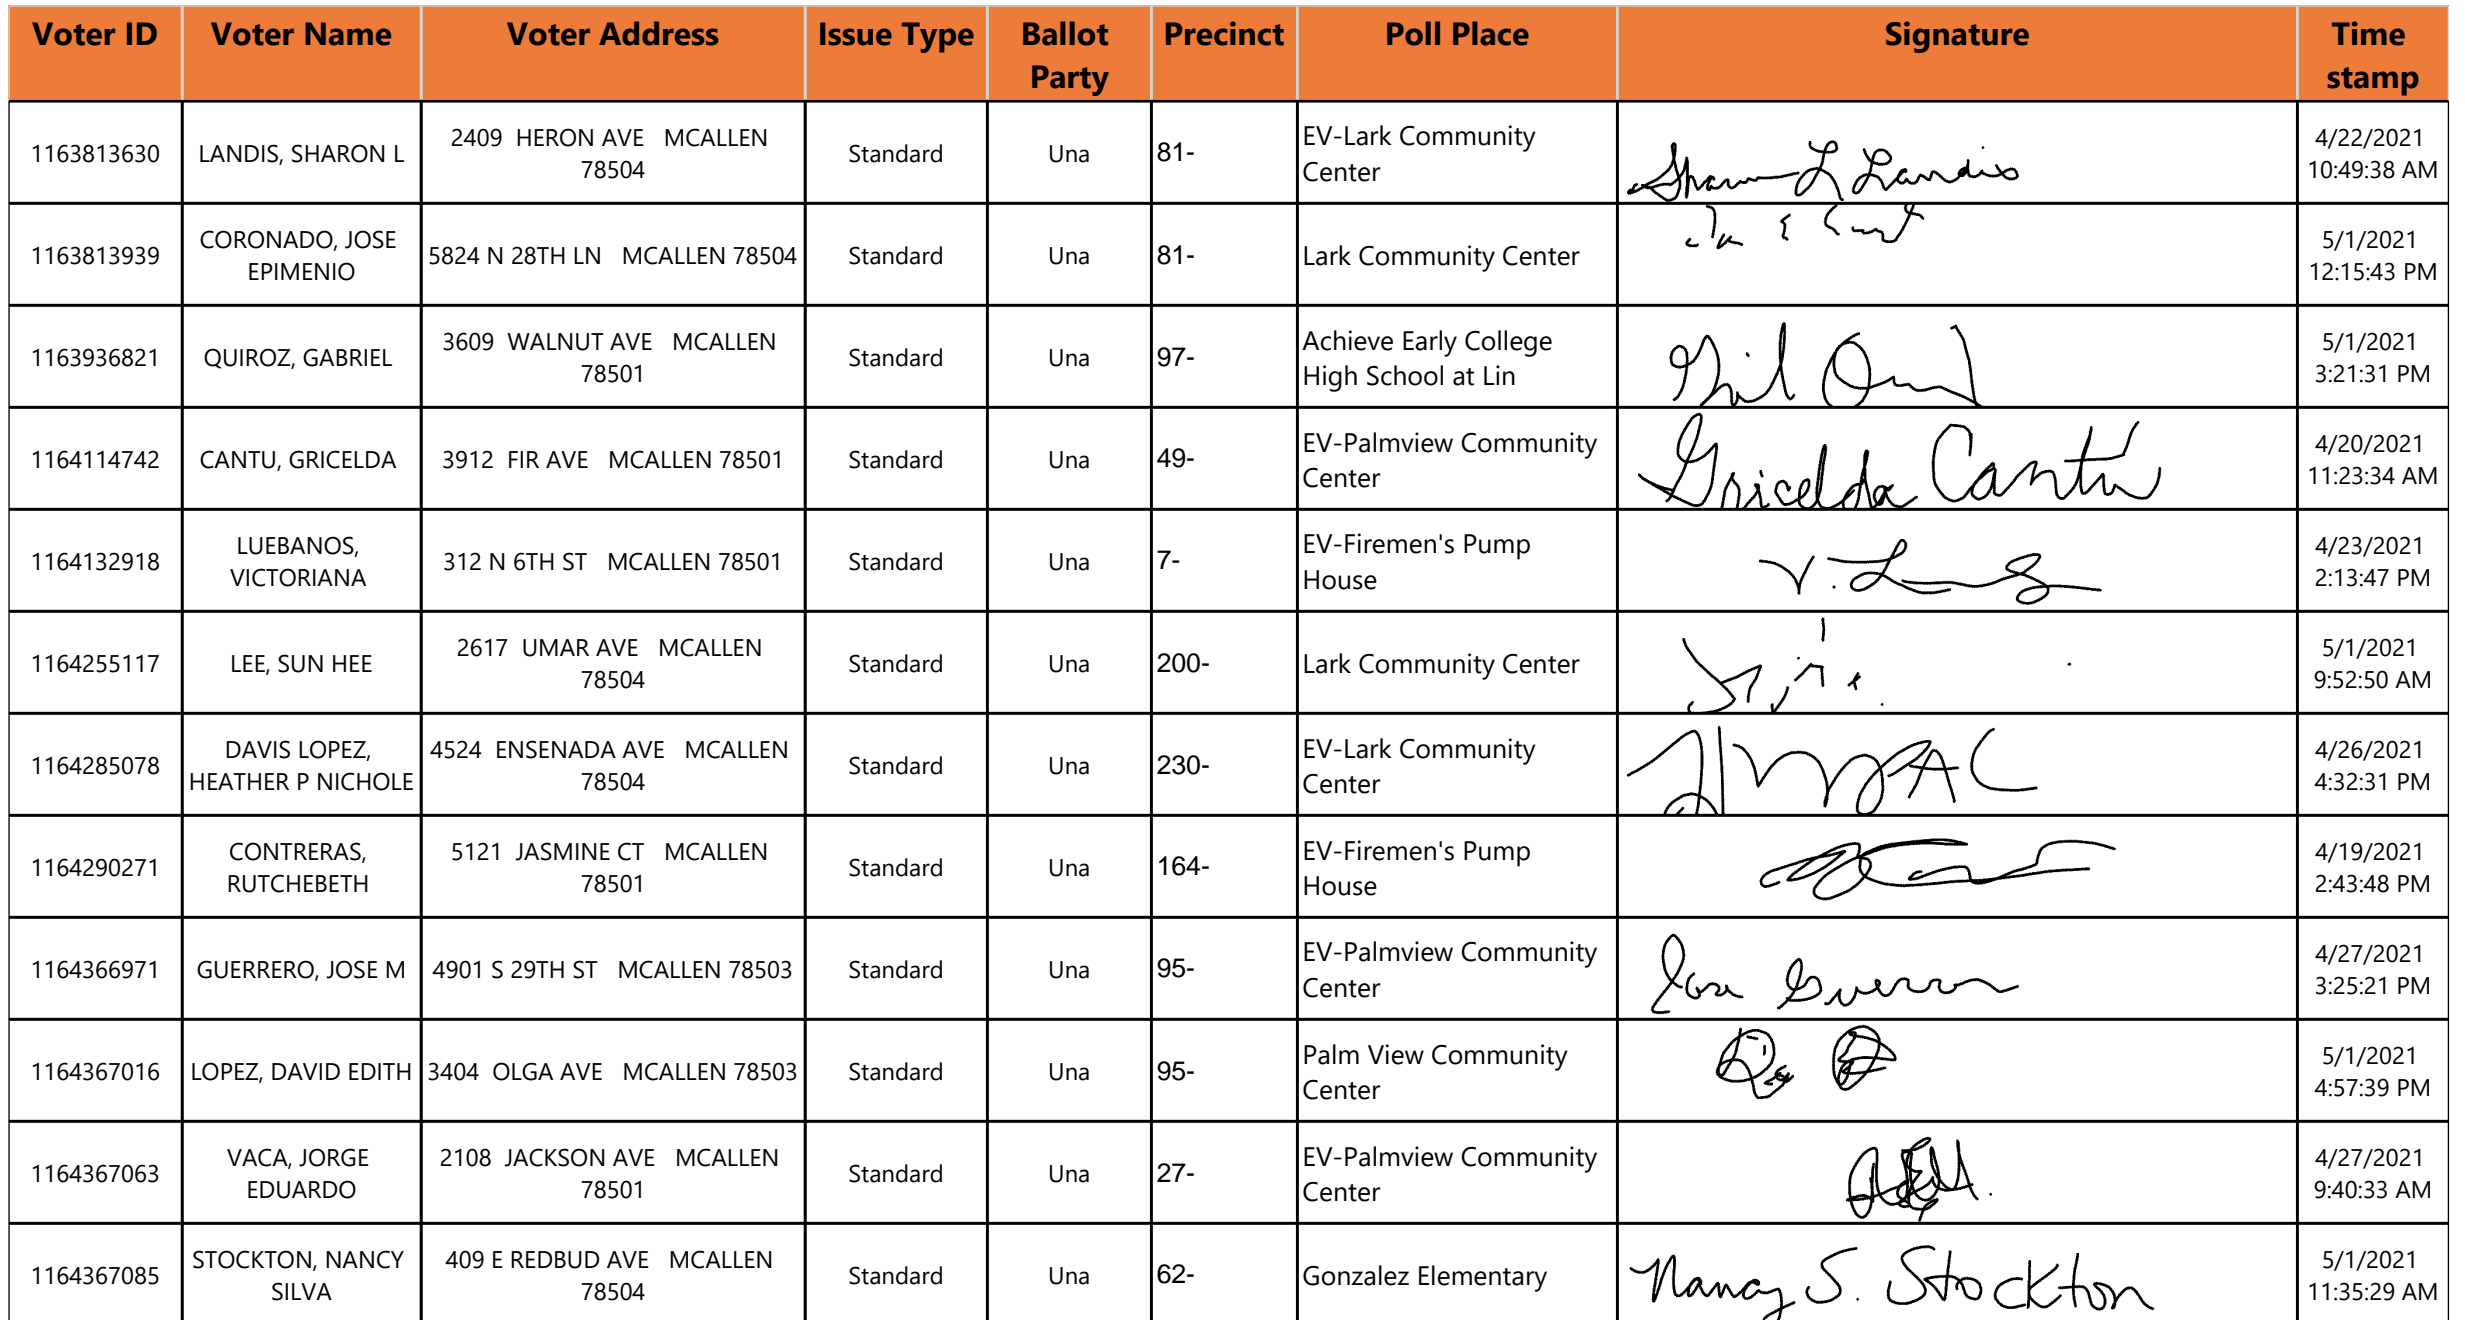 Voter ID Voter Name Voter Address Issue Type Ballot Party Precinct Poll Place Signature Time stamp
1163813630 LANDIS, SHARON L 2409 HERON AVE MCALLEN 78504 Standard Una 81- EV-Lark Community Center Sharon L Landis 4/22/2021 10:49:38 AM
1163813939 CORONADO, JOSE EPIMENIO 5824 N 28TH LN MCALLEN 78504 Standard Una 81- Lark Community Center 5/1/2021 12:15:43 PM
1163936821 QUIROZ, GABRIEL 3609 WALNUT AVE MCALLEN 78501 Standard Una 97- Achieve Early College High School at Lin 5/1/2021 3:21:31 PM
1164114742 CANTU, GRICELDA 3912 FIR AVE MCALLEN 78501 Standard Una 49- EV-Palmview Community Center Gricelda Cantú 4/20/2021 11:23:34 AM
1164132918 LUEBANOS, VICTORIANA 312 N 6TH ST MCALLEN 78501 Standard Una 7- EV-Firemen's Pump House V. 4/23/2021 2:13:47 PM
1164255117 LEE, SUN HEE 2617 UMAR AVE MCALLEN 78504 Standard Una 200- Lark Community Center 5/1/2021 9:52:50 AM
1164285078 DAVIS LOPEZ, HEATHER P NICHOLE 4524 ENSENADA AVE MCALLEN 78504 Standard Una 230- EV-Lark Community Center 4/26/2021 4:32:31 PM
1164290271 CONTRERAS, RUTCHEBETH 5121 JASMINE CT MCALLEN 78501 Standard Una 164- EV-Firemen's Pump House 4/19/2021 2:43:48 PM
1164366971 GUERRERO, JOSE M 4901 S 29TH ST MCALLEN 78503 Standard Una 95- EV-Palmview Community Center Jose 4/27/2021 3:25:21 PM
1164367016 LOPEZ, DAVID EDITH 3404 OLGA AVE MCALLEN 78503 Standard Una 95- Palm View Community Center 5/1/2021 4:57:39 PM
1164367063 VACA, JORGE EDUARDO 2108 JACKSON AVE MCALLEN 78501 Standard Una 27- EV-Palmview Community Center 4/27/2021 9:40:33 AM
1164367085 STOCKTON, NANCY SILVA 409 E REDBUD AVE MCALLEN 78504 Standard Una 62- Gonzalez Elementary Nancy S. Stockton 5/1/2021 11:35:29 AM